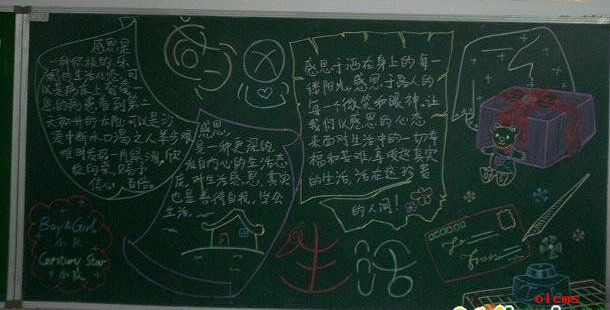 感恩是
一种积极的乐
观的生活心态，可
以是病
危的病患看到第二
天初升的太阳；可以是沙
漠中断水口渴之人举步艰
难时发现一片绿洲，欣
欣向荣，赐予
信心
感恩，
是一种更深的，
发自内心的生活态
度。对生活感恩，其实
也是善待自我，学会
生活。
感恩于洒在身上的每一
缕阳光，感恩于路人的
每一个微笑和眼神，让
我们以感恩的心态
来面对生活中的一切幸
福和苦难，真诚这真实
的生活，活在这珍贵
的人间！
Boy & Girl
小队
Century Star
小队
生活
To
From
olcms